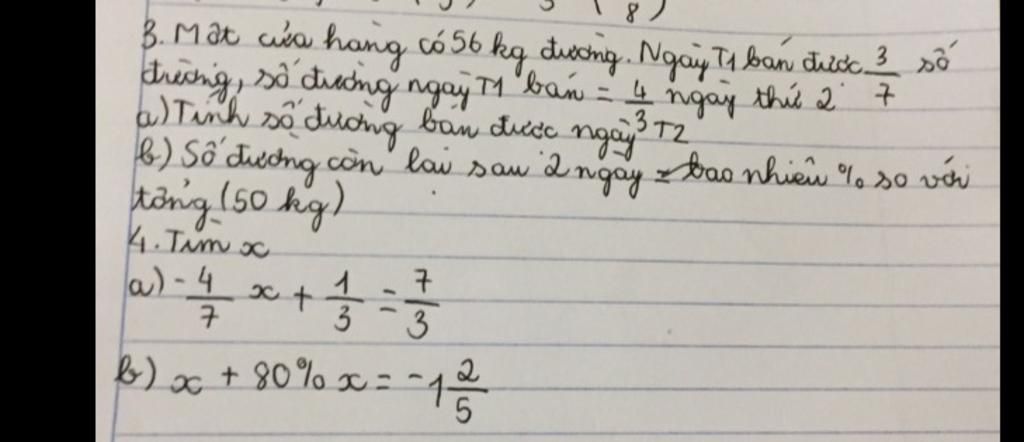 8)
3. Một cửa hàng có 56 kg đường. Ngày T1 bán được 3/7 số
đường, số đường ngày T1 bán = 4/3 ngày thứ 2
a) Tính số đường bán được ngày T2
b) Số đường còn lại sau 2 ngày = bao nhiêu % so với
tổng (50 kg)
4. Tìm x
a) -4/7 x + 1/3 = 7/3
b) x + 80% x = -1 2/5